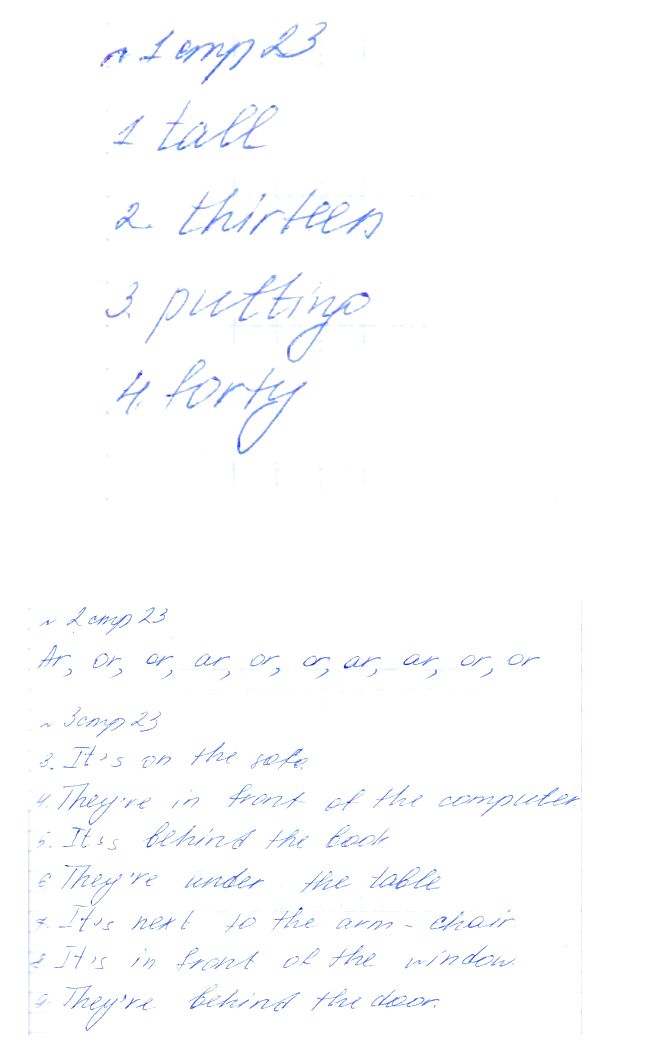 № 1 стр 23
1 tall
2. thirteen
3. putting
4. forty
№ 2 стр 23
Ar, or, or, ar, or, or, ar, ar, or, or
№ 3 стр 23
3. It's on the sofa.
4. They're in front of the computer
5. It's behind the book
6 They're under the table
7. It's next to the arm-chair
8 It's in front of the window.
9. They're behind the door.